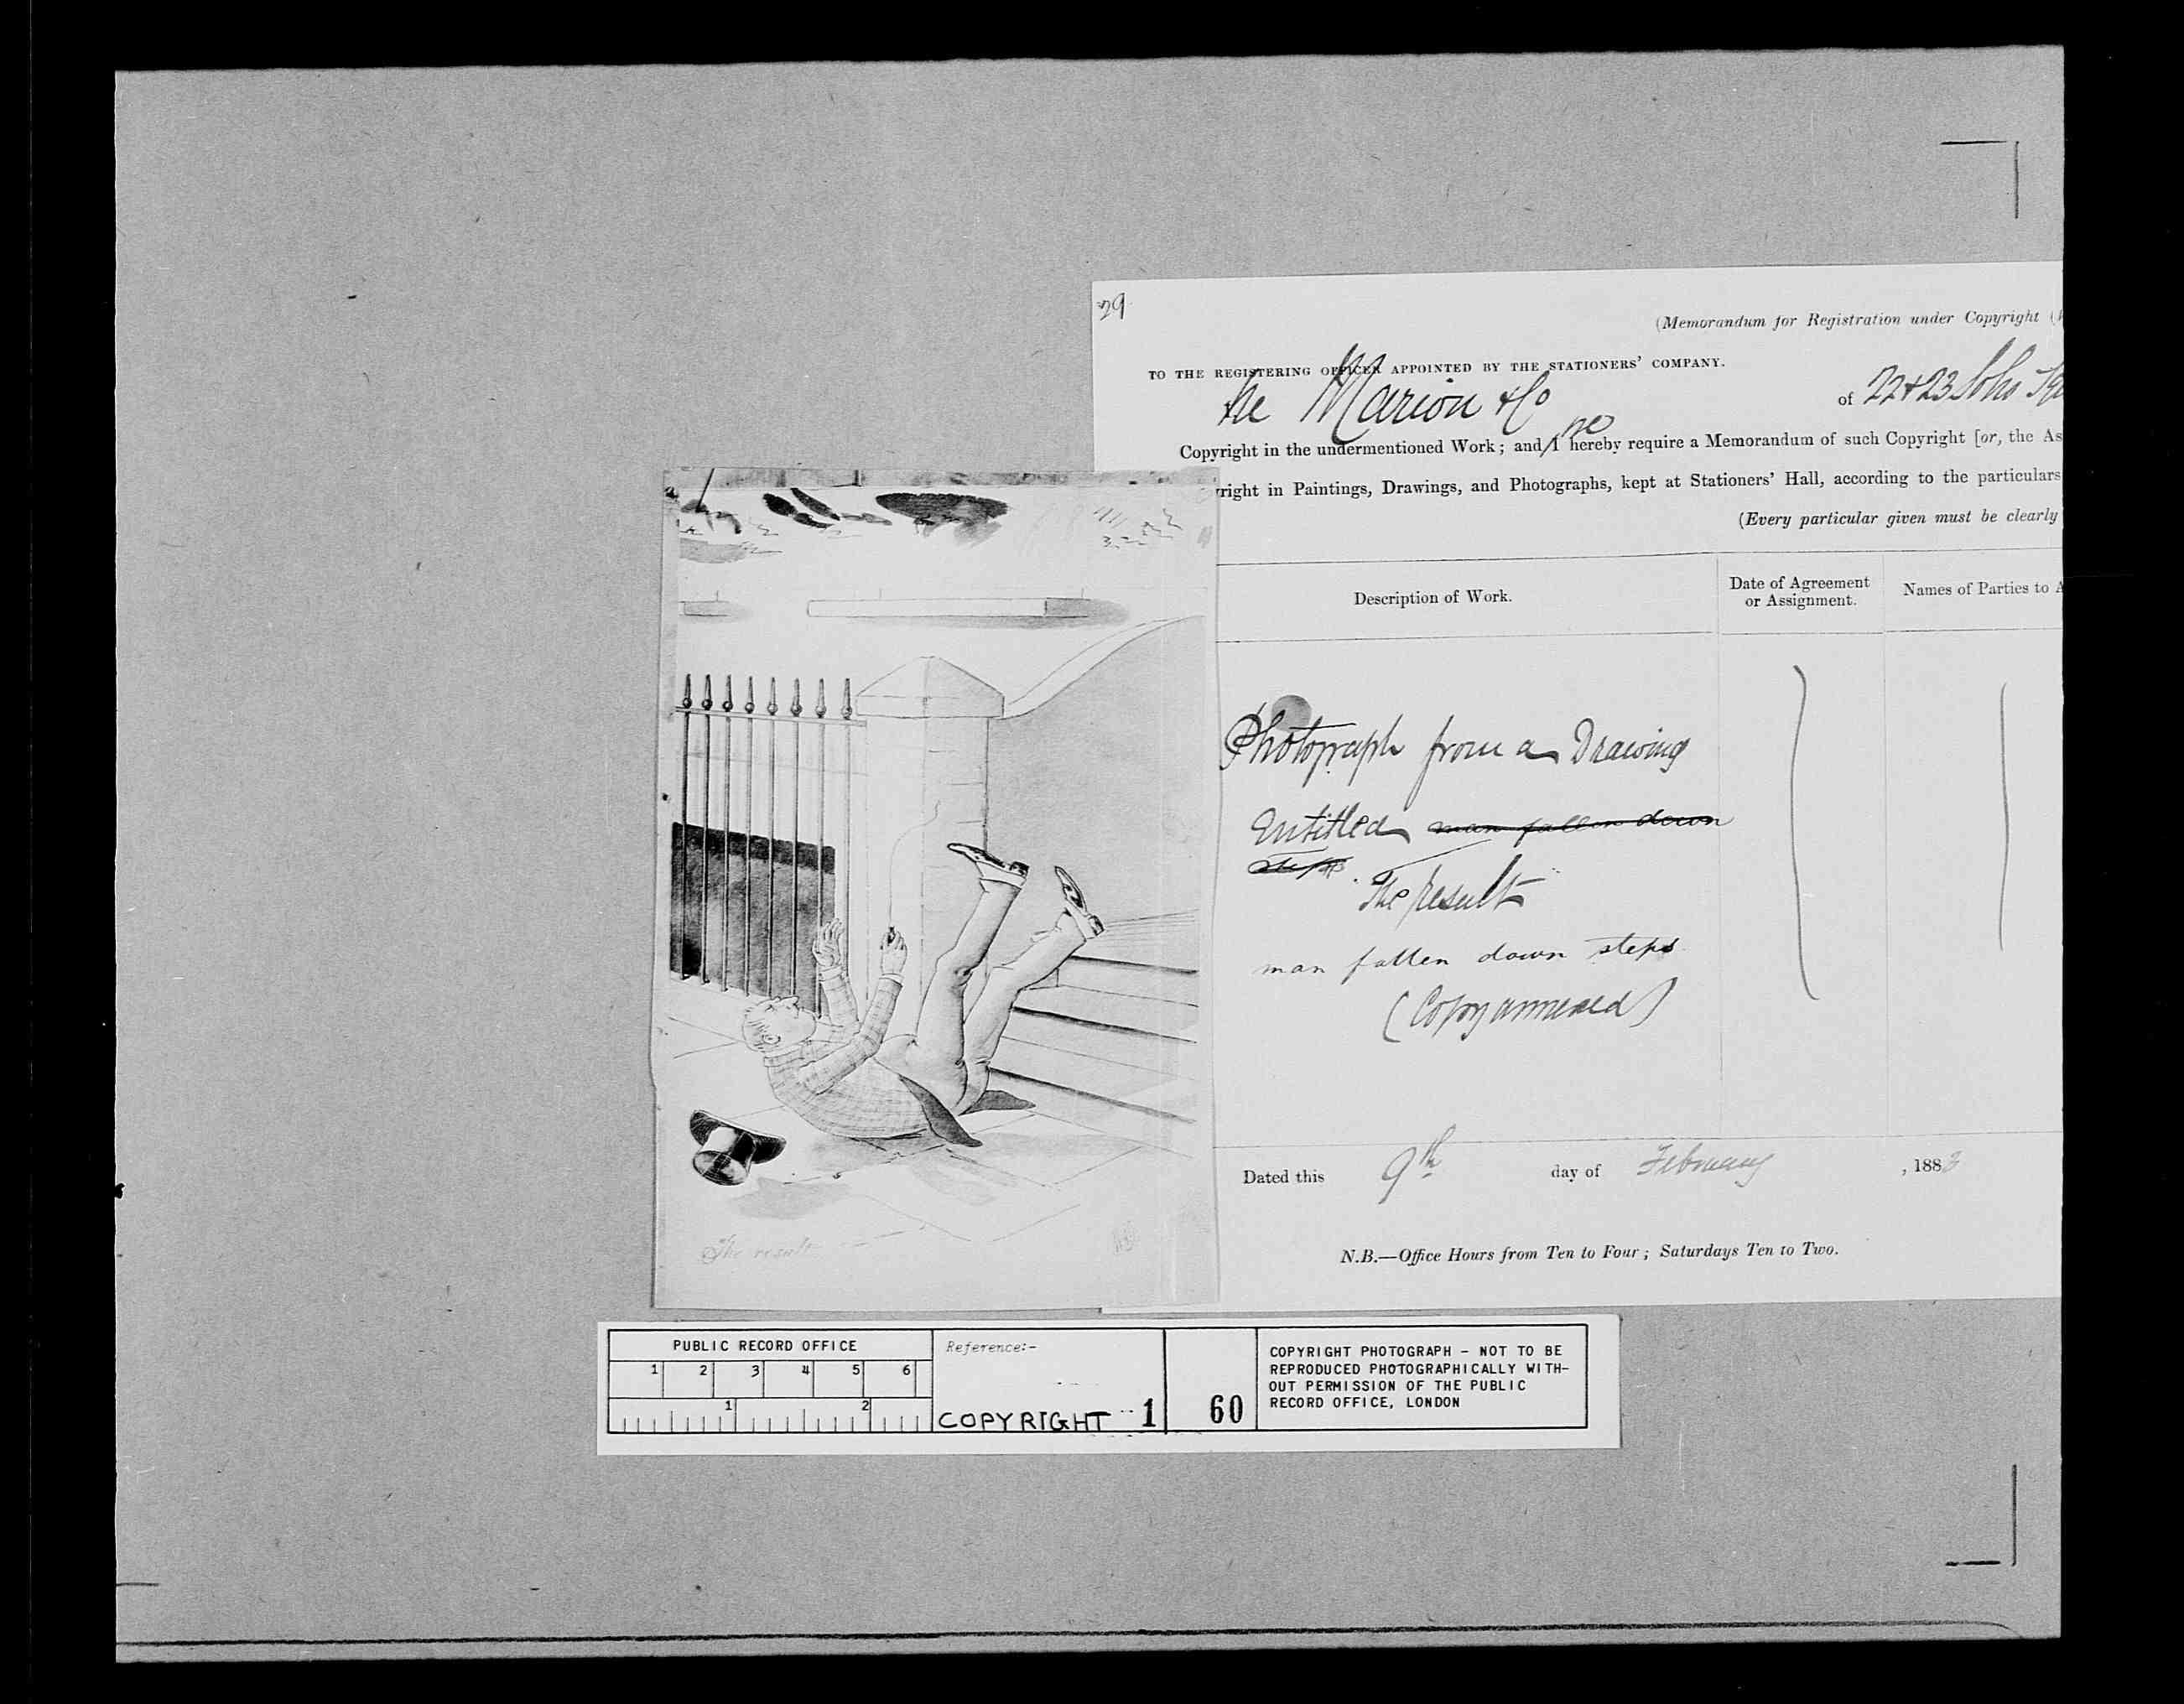 29
(Memorandum for Registration under Copyright (
TO THE REGISTERING OFFICER APPOINTED BY THE STATIONERS' COMPANY.
We Marion & Co of 22 & 23 Soho Sq
Copyright in the undermentioned Work; and/I we hereby require a Memorandum of such Copyright [or, the As
right in Paintings, Drawings, and Photographs, kept at Stationers' Hall, according to the particulars
(Every particular given must be clearly
Description of Work.
Date of Agreement
or Assignment.
Names of Parties to A
Photograph from a Drawing
Entitled man fallen down
steps. The result
man fallen down steps
(Copy annexed)
Dated this 9th day of February, 1883
N.B.—Office Hours from Ten to Four; Saturdays Ten to Two.
The result
PUBLIC RECORD OFFICE
1 2 3 4 5 6
1 2
Reference:-
COPYRIGHT 1 60
COPYRIGHT PHOTOGRAPH - NOT TO BE
REPRODUCED PHOTOGRAPHICALLY WITH-
OUT PERMISSION OF THE PUBLIC
RECORD OFFICE, LONDON